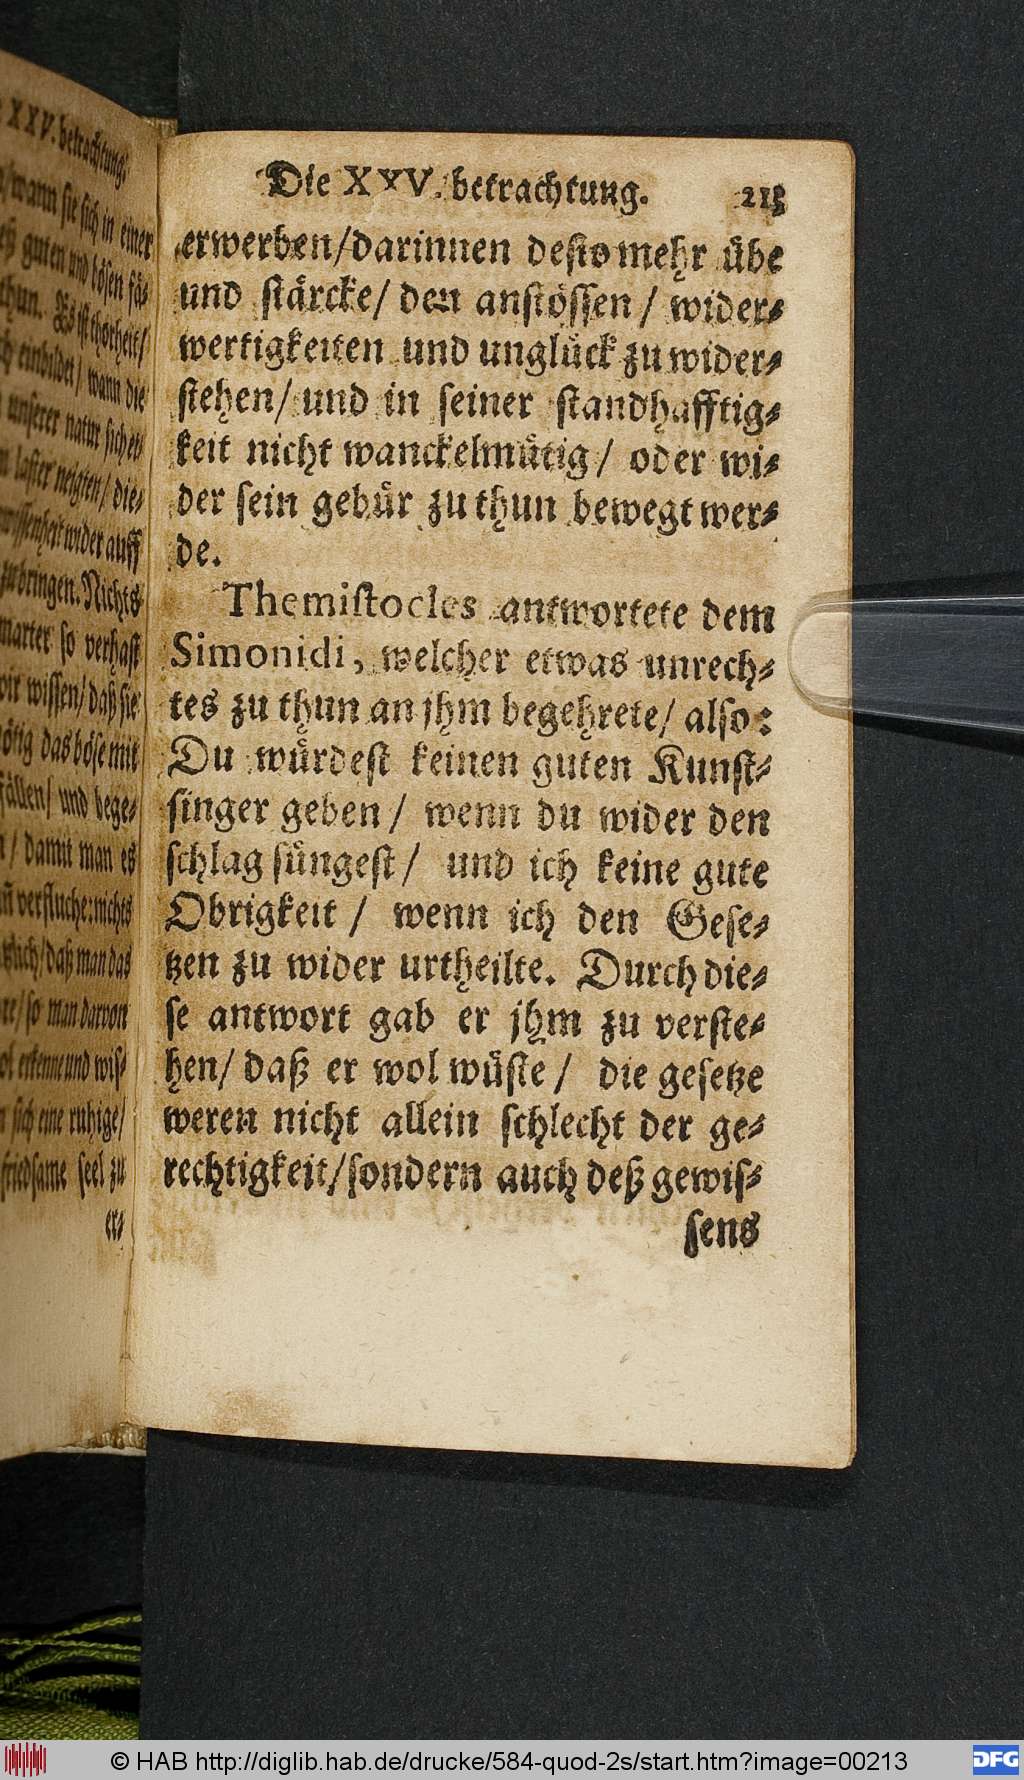 XXV. betrachtung.
wann sie sich in einer
guten und bösen fä-
thun. Es ist thorheit/
einbildet/ wann die
unserer natur sich er-
laster neigten/ die-
wissenheit wider auff
zubringen. Nichts
marter so verhast
wir wissen/ daß sie
nötig das böse mit
fällen/ und bege-
/ damit man es
verfluche: nichts
/ daß man das
/ so man darvon
erkenne und wis-
sich eine ruhige/
friedsame seel zu
er-
Die XXV. betrachtung. 215
erwerben/darinnen desto mehr übe
und stärcke/ den anstössen/ wider-
wertigkeiten und unglück zu wider-
stehen/ und in seiner standhafftig-
keit nicht wanckelmütig/ oder wi-
der sein gebür zu thun bewegt wer-
de.
Themistocles antwortete dem
Simonidi, welcher etwas unrech-
tes zu thun an jhm begehrete/ also:
Du würdest keinen guten Kunst-
singer geben/ wenn du wider den
schlag süngest/ und ich keine gute
Obrigkeit/ wenn ich den Gese-
tzen zu wider urtheilte. Durch die-
se antwort gab er jhm zu verste-
hen/ daß er wol wüste/ die gesetze
weren nicht allein schlecht der ge-
rechtigkeit/sondern auch deß gewis-
sens
© HAB http://diglib.hab.de/drucke/584-quod-2s/start.htm?image=00213
DFG